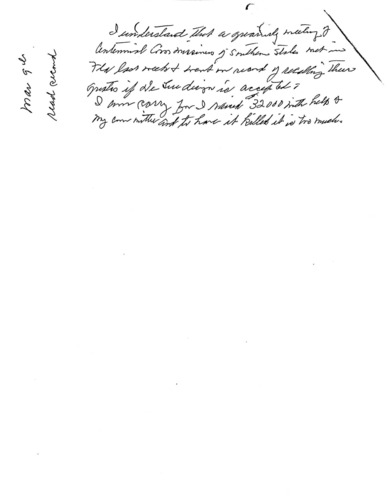 Mar 9th
read record
I understand that a quarterly meeting of
Centennial Commissions of Southern States met in
Fla last week & went on record of recalling their
if De Lue design is accepted.
I am sorry for I raised 32000 with help of
my committee and to have it killed it is too much.